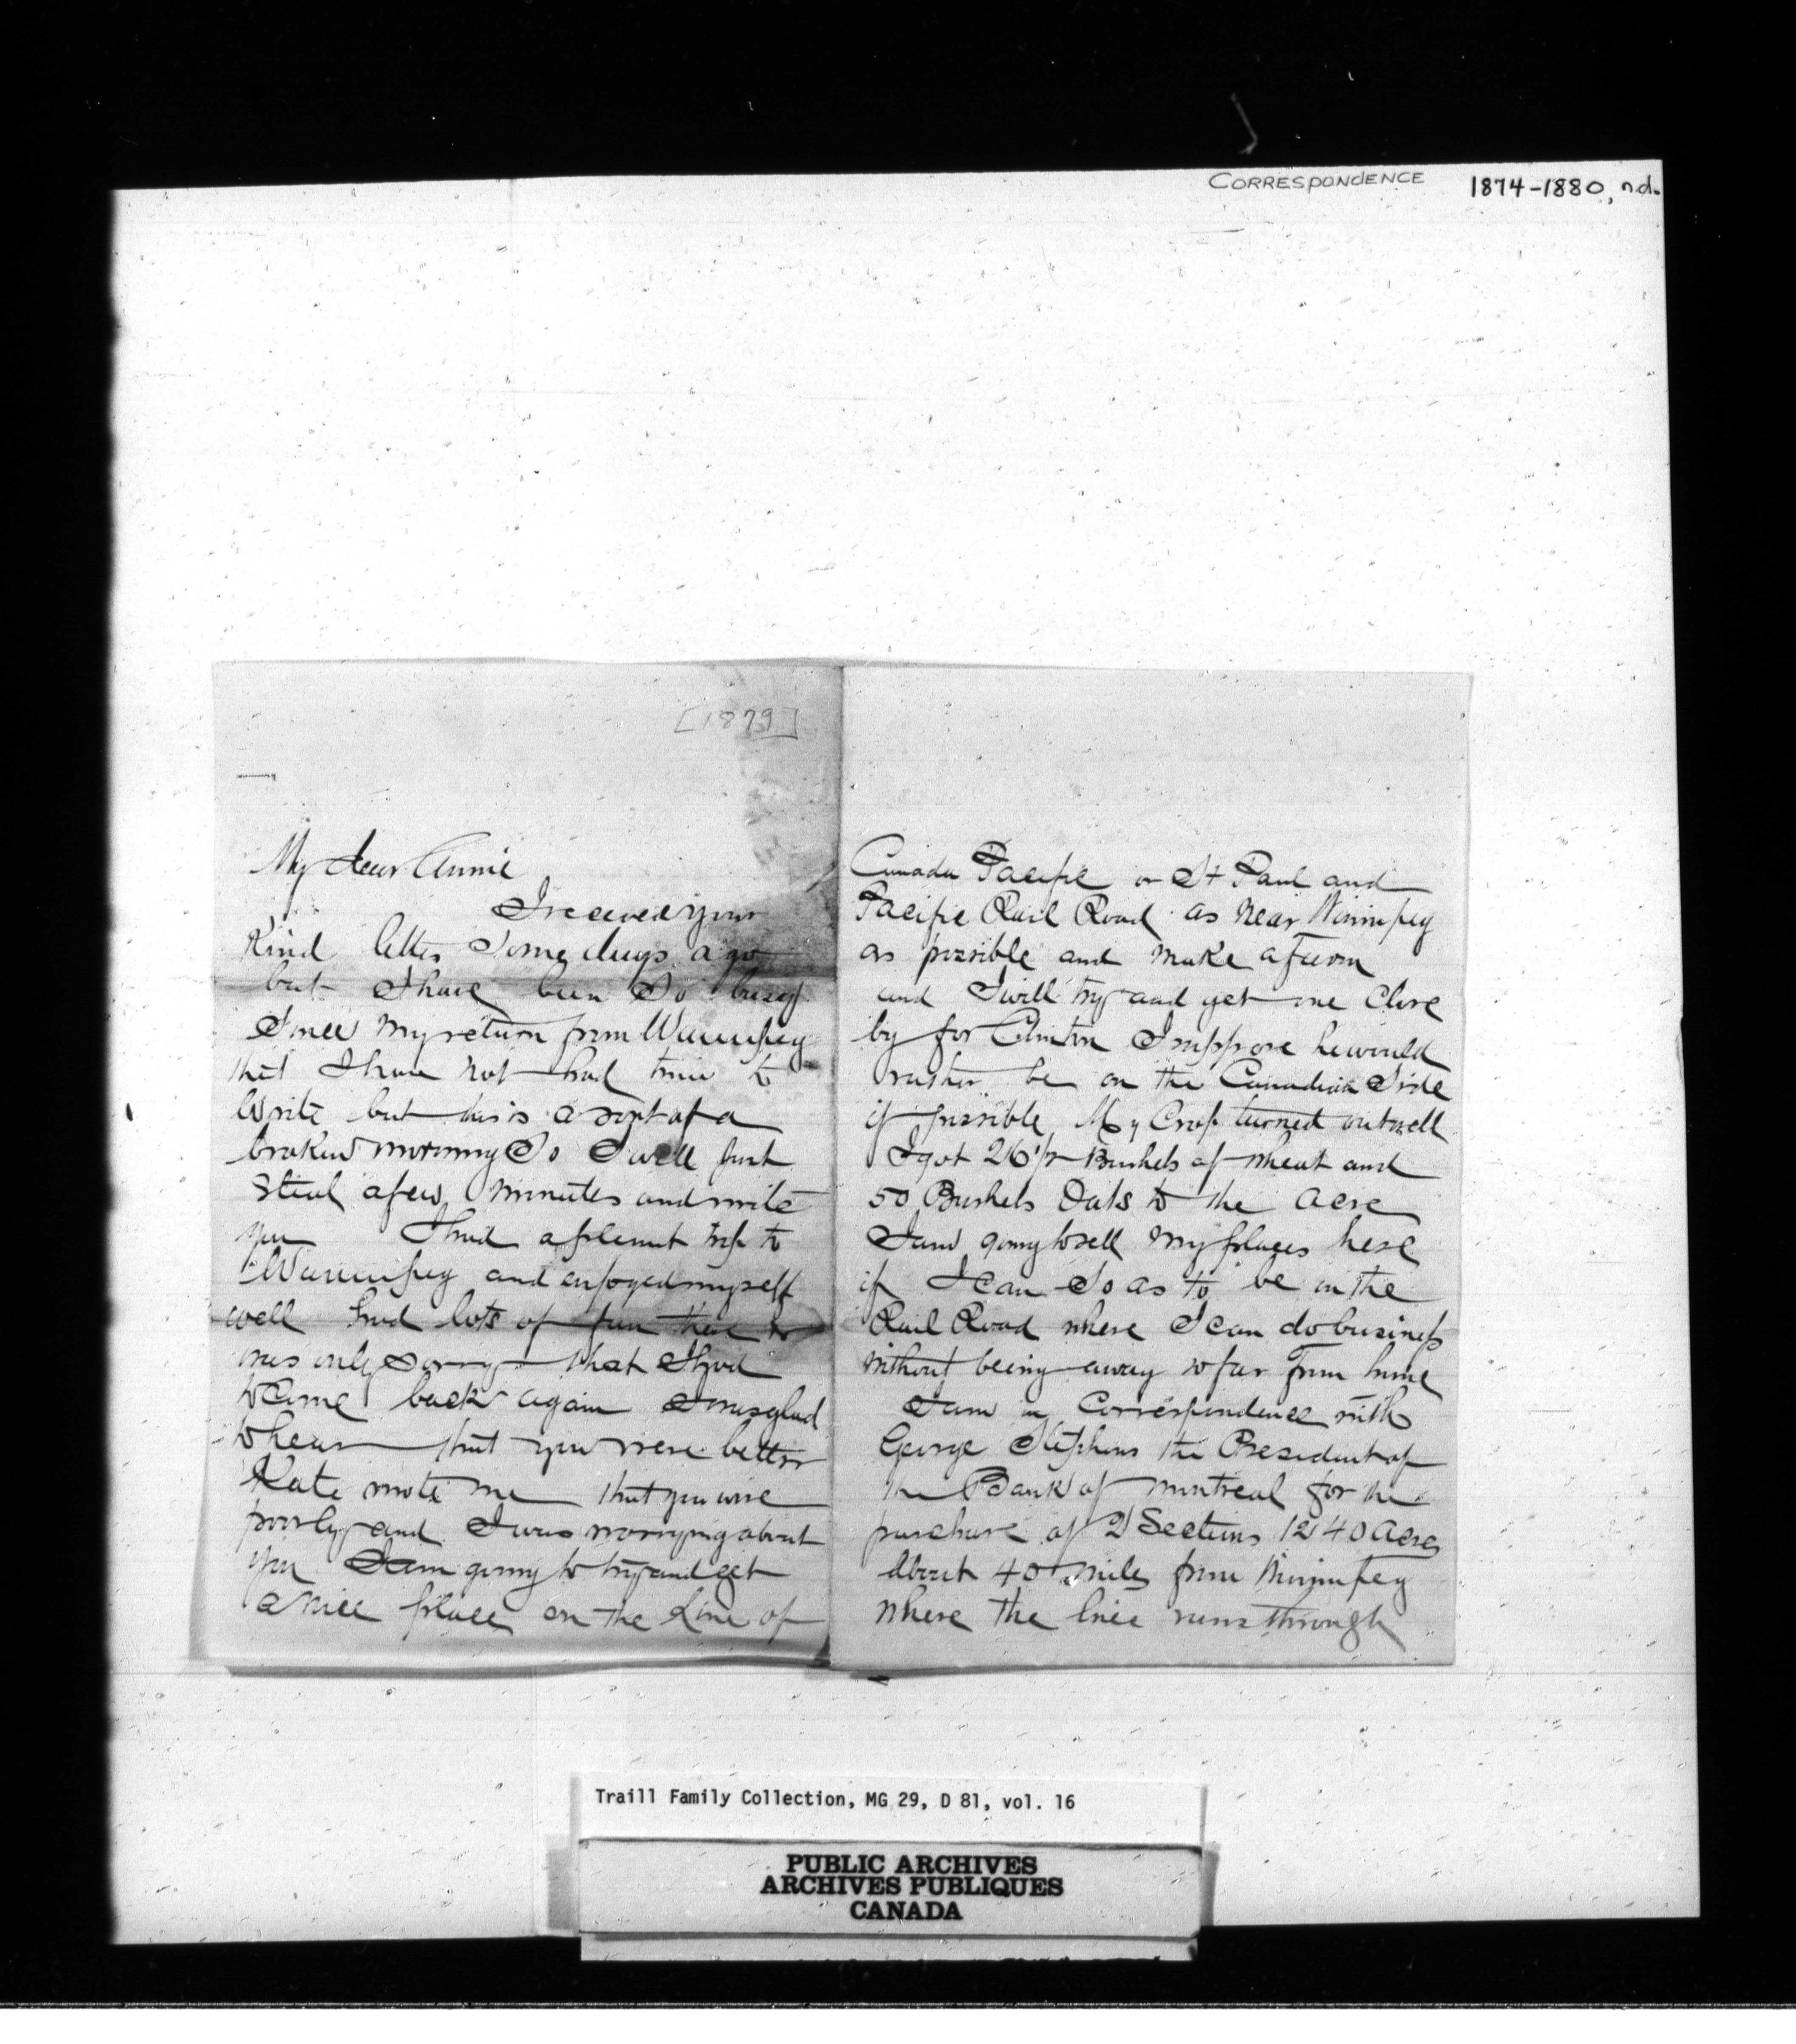 CORRESPONDENCE 1874-1880, n.d.
[1879]
My dear Annie
I received your
Kind letter Some days ago
but I have been So busy
Since my return from Winnipeg
that I have not had time to
Write but this is a sort of a
broken morning So I will just
Steal a few minutes and write
you I had a plesent trip to
Winnipeg and enjoyed myself
well had lots of fun there &
was only Sorry that I had
to Come back again I was glad
to hear that you were better
Kate wrote me that you were
poorly and I was worrying about
you I am going to try and get
a nice place on the Line of
Canada Pacific or St Paul and
Pacific Rail Road as near Winnipeg
as possible and make a farm
and I will try and get one Close
by for Clinton I suppose he would
rather be on the Canadian Side
if possible My Crop turned out well
I got 26 1/2 Bushels of wheat and
50 Bushels Oats to the acre
I am going to sell my places here
if I can So as to be in the
Rail Road where I can do business
without being away so far from home
I am in Correspondence with
George Stephens the President of
the Bank of Montreal for the
purchase of 2 Sections 1240 acres
about 40 miles from Winnipeg
where the line runs through
Traill Family Collection, MG 29, D 81, vol. 16
PUBLIC ARCHIVES
ARCHIVES PUBLIQUES
CANADA